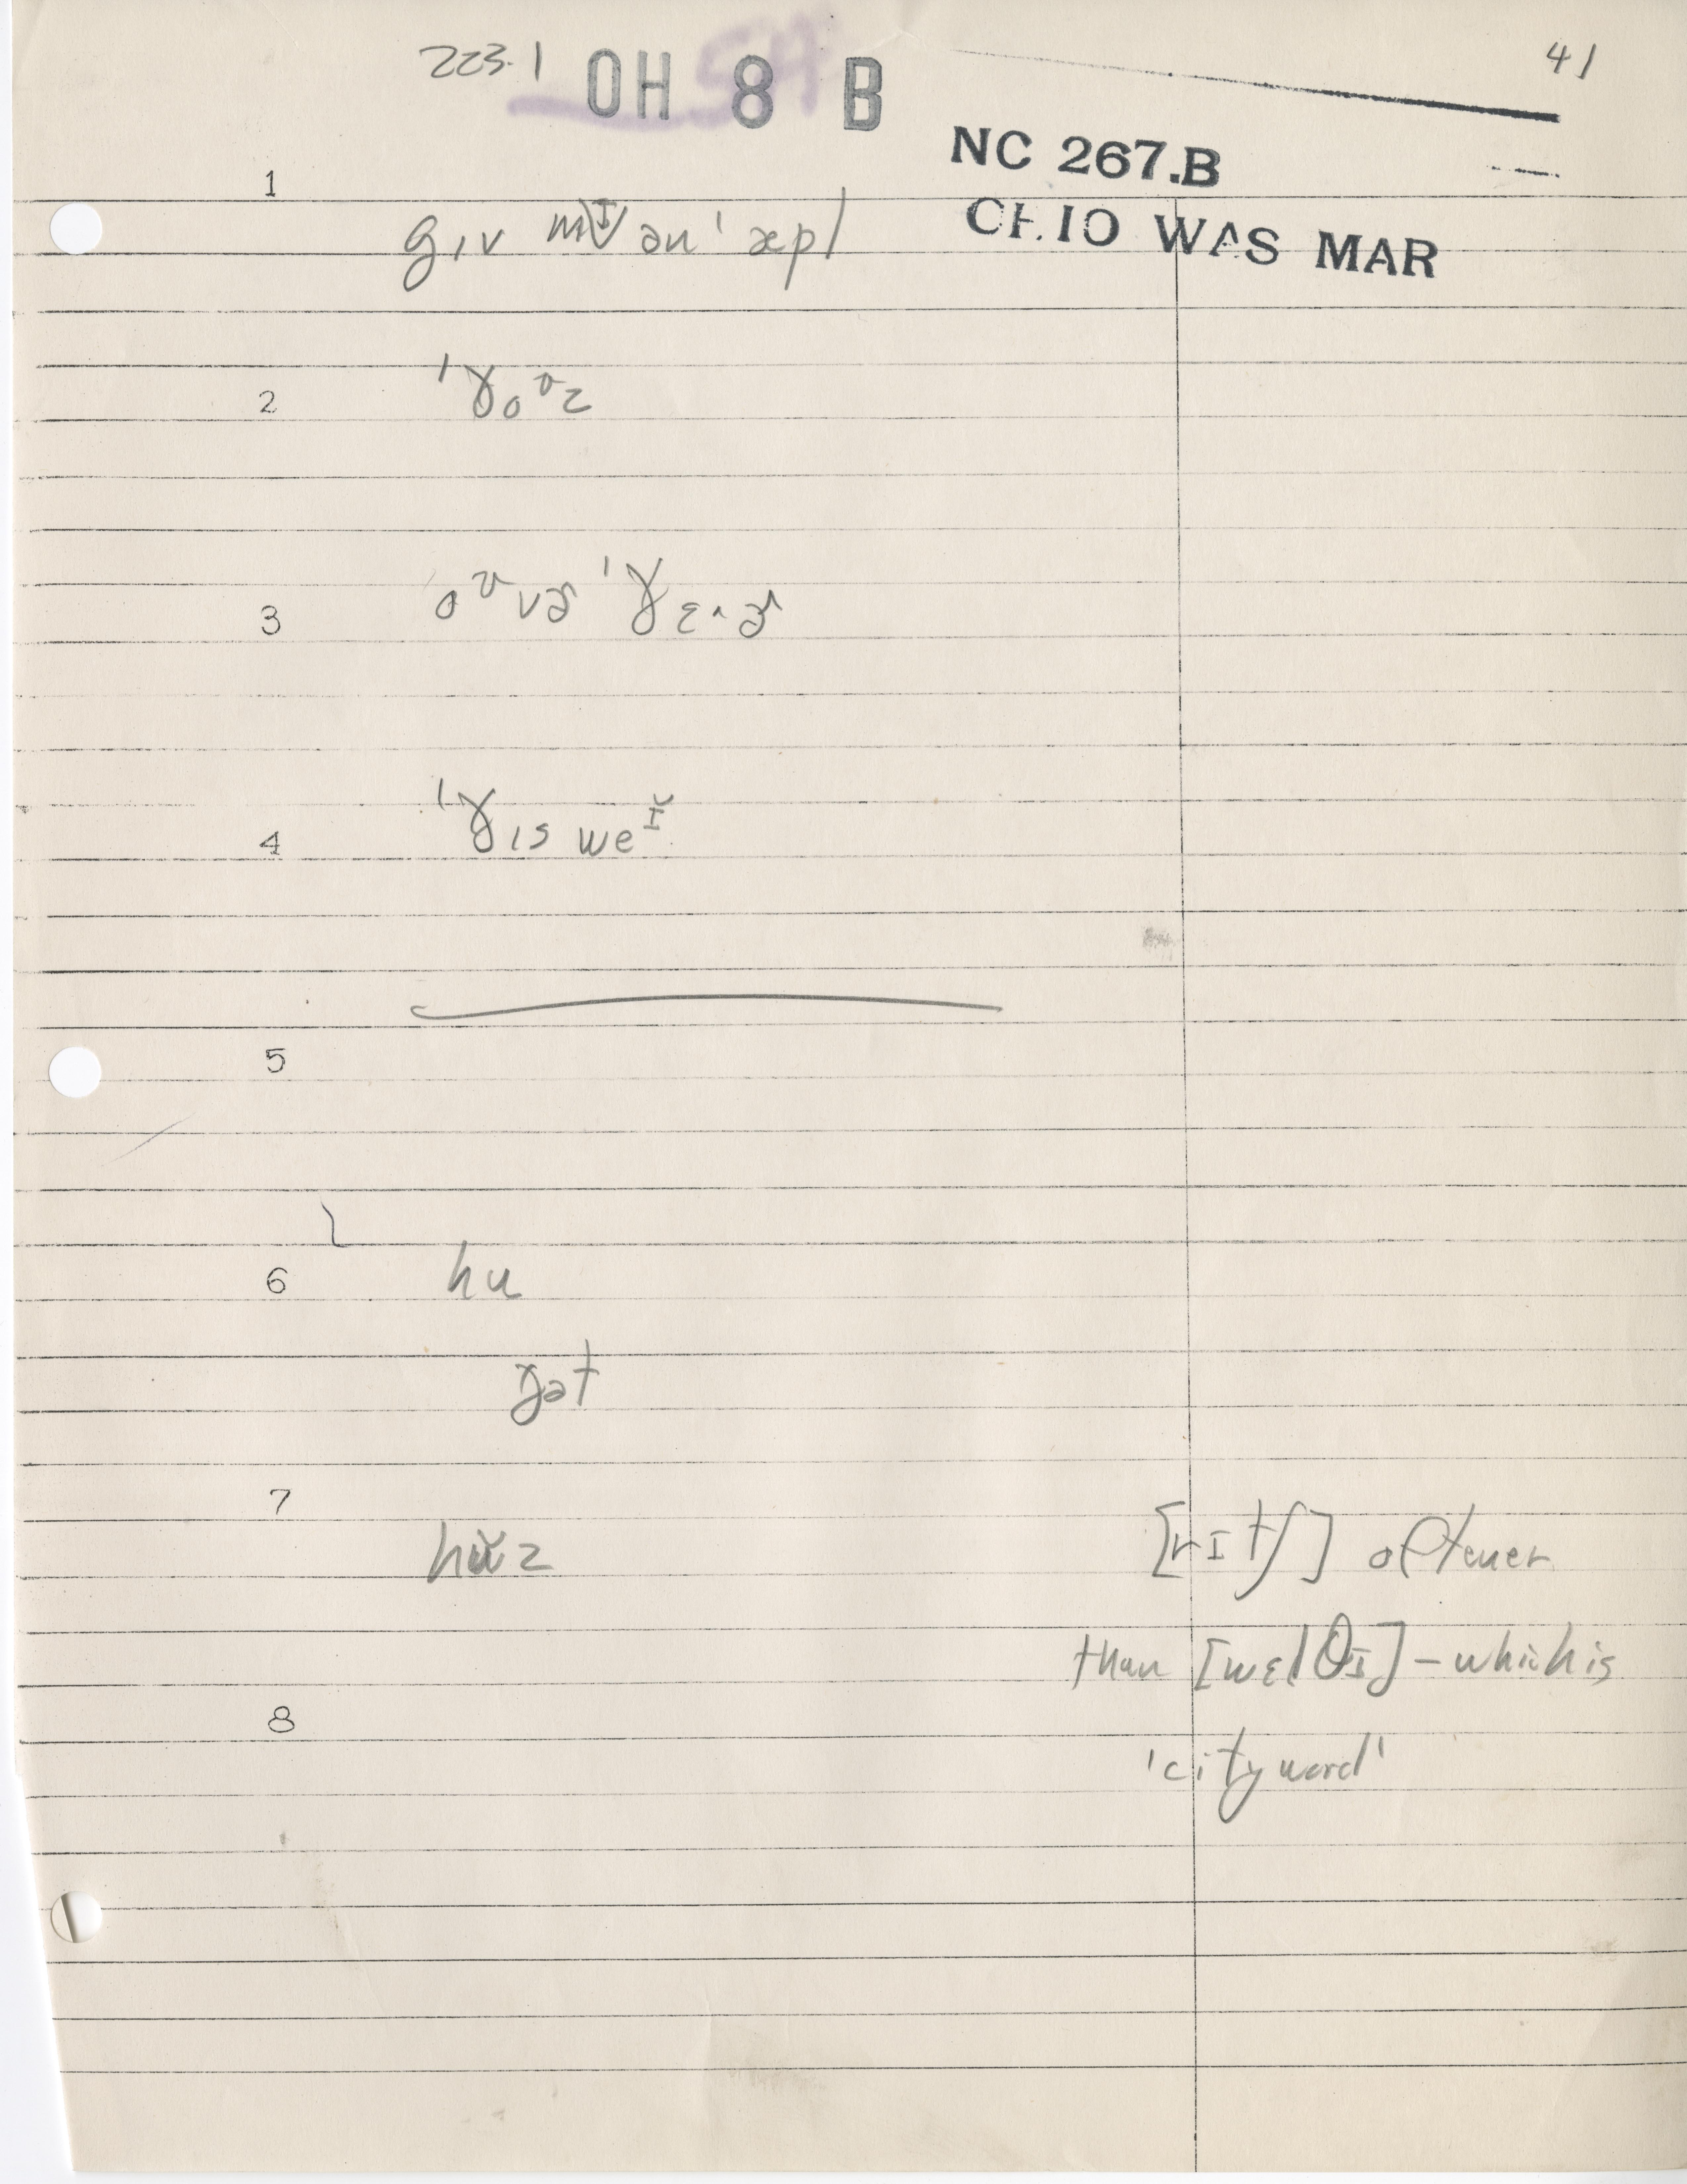 223.1 OH 8 B 41
NC 267.B
OHIO WAS MAR
1 gɪv mɪ ən ˈæpl
2 ˈðoᶷz
3 oᶷvɚ ˈðɛ˄ɚ
4 ˈðɪs weᶦ̆
5
6 hu
ðət
7 hŭz [rɪtʃ] oftener
than [wɛlθɪ] – which is
8
'city word'